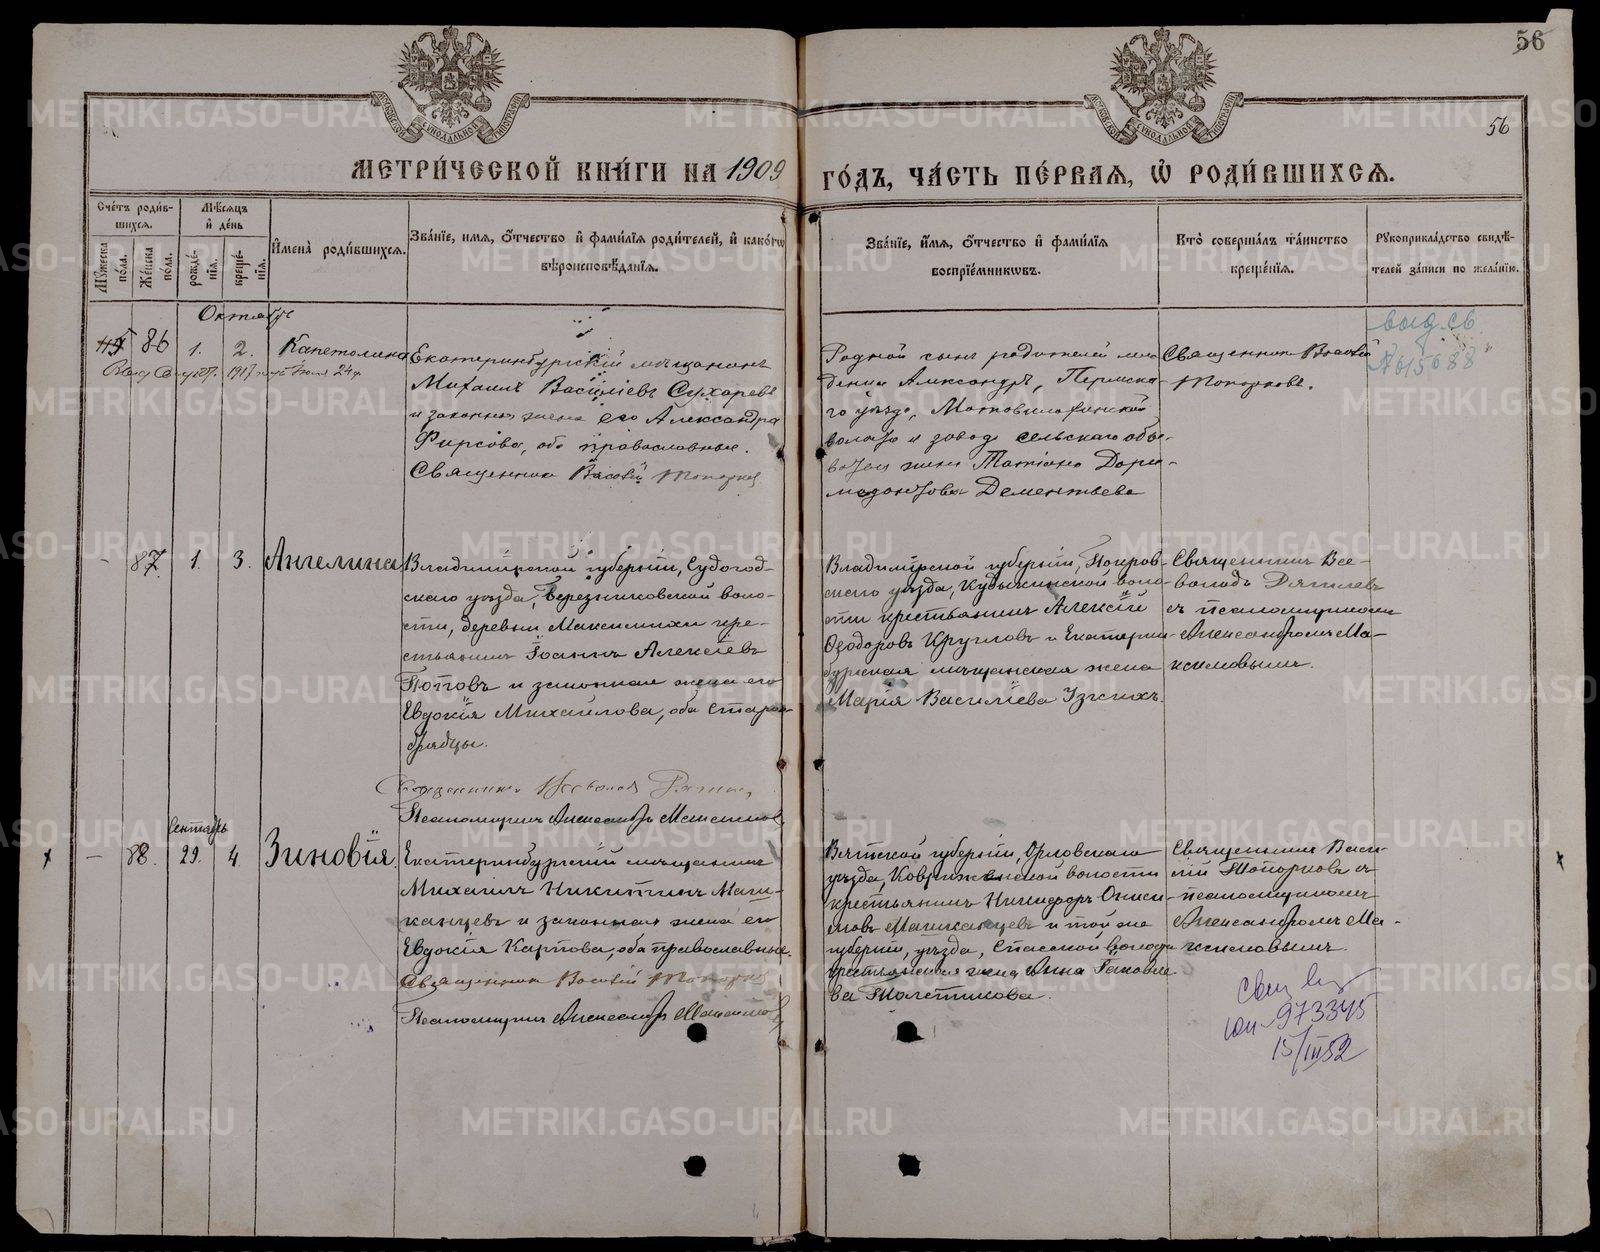 56
56
МЕТРИ́ЧЕСКОЙ КНИ́ГИ НА 1909 ГО́ДЪ, ЧА́СТЬ ПЕ́РВАЯ, Ѿ РОДИ́ВШИХСЯ.
Сче́тъ роди́в-
шихся.
Мꙋжеска
пола.
Же́нска
по́ла.
Мѣ́сяцъ
и҆ де́нь
рожде́-
нїя.
креще́-
нїя.
И҆мена̀ роди́вшихся.
Зва́нїе, имя, ѻ҆́тчество и҆ фами́лїя роди́телей, и҆ како́гѡ
вѣроисповѣ́данїя.
Зва́нїе, и҆́мя, ѻ҆́тчество и҆ фами́лїя
воспрїе́мникѡвъ.
Кто̀ соверша́лъ та́инство
креще́нїя.
Рꙋкоприкла́дство свидѣ́-
телей за́писи по жела́нїю.
Октябрь
86 1. 2. Капетолина
Екатеринбургскій мѣщанинъ
Михаилъ Василіевъ Сухаревъ
и законная жена его Александра
Фирсова, оба православные.
Священникъ Василій Топорков
Родной сынъ родителей мла-
денца Александръ, Пермска-
го уѣзда, Мотовилихинской
волости и завода сельскаго обы-
вателя жена Татіана Дори-
медонтова Дементьева
Священникъ Василій
Топорковъ.
выд. св.
№ 615688
- 87. 1. 3. Ангелина
Владимірской губерніи, Судогод-
скаго уѣзда, Березниковской воло-
сти, деревни Максимихи кре-
стьянинъ Іоаннъ Алексіевъ
Поповъ и законная жена его
Евдокія Михаилова, оба старо-
обрядцы.
Священникъ Всеволодъ
Псаломщикъ Александръ Максимов
Владимірской губерніи, Покров-
скаго уѣзда, Кудыкинской воло-
сти крестьянинъ Алексій
Ѳеодоровъ Кругловъ и Екатерин-
бургская мѣщанская жена
Марія Василіева Узкихъ.
Священникъ Все-
володъ
съ псаломщикомъ
Александромъ Ма-
ксимовымъ.
Сентябрь
- 88. 29. 4. Зиновія
Екатеринбургскій мѣщанинъ
Михаилъ Никитинъ Маш-
канцевъ и законная жена его
Евдокія Карпова, оба православные.
Священникъ Василій Топорков
Псаломщикъ Александръ Максимов
Вятской губерніи, Орловскаго
уѣзда, волости
крестьянинъ Никифоръ Ониси-
мовъ Машканцевъ и той же
губерніи, уѣзда, Спасской волости
крестьянская жена Анна Іаковле-
ва Полетикова.
Священникъ Васи-
лій Топорковъ съ
псаломщикомъ
Александромъ Ма-
ксимовымъ.
973345
15/III 52
METRIKI.GASO-URAL.RU